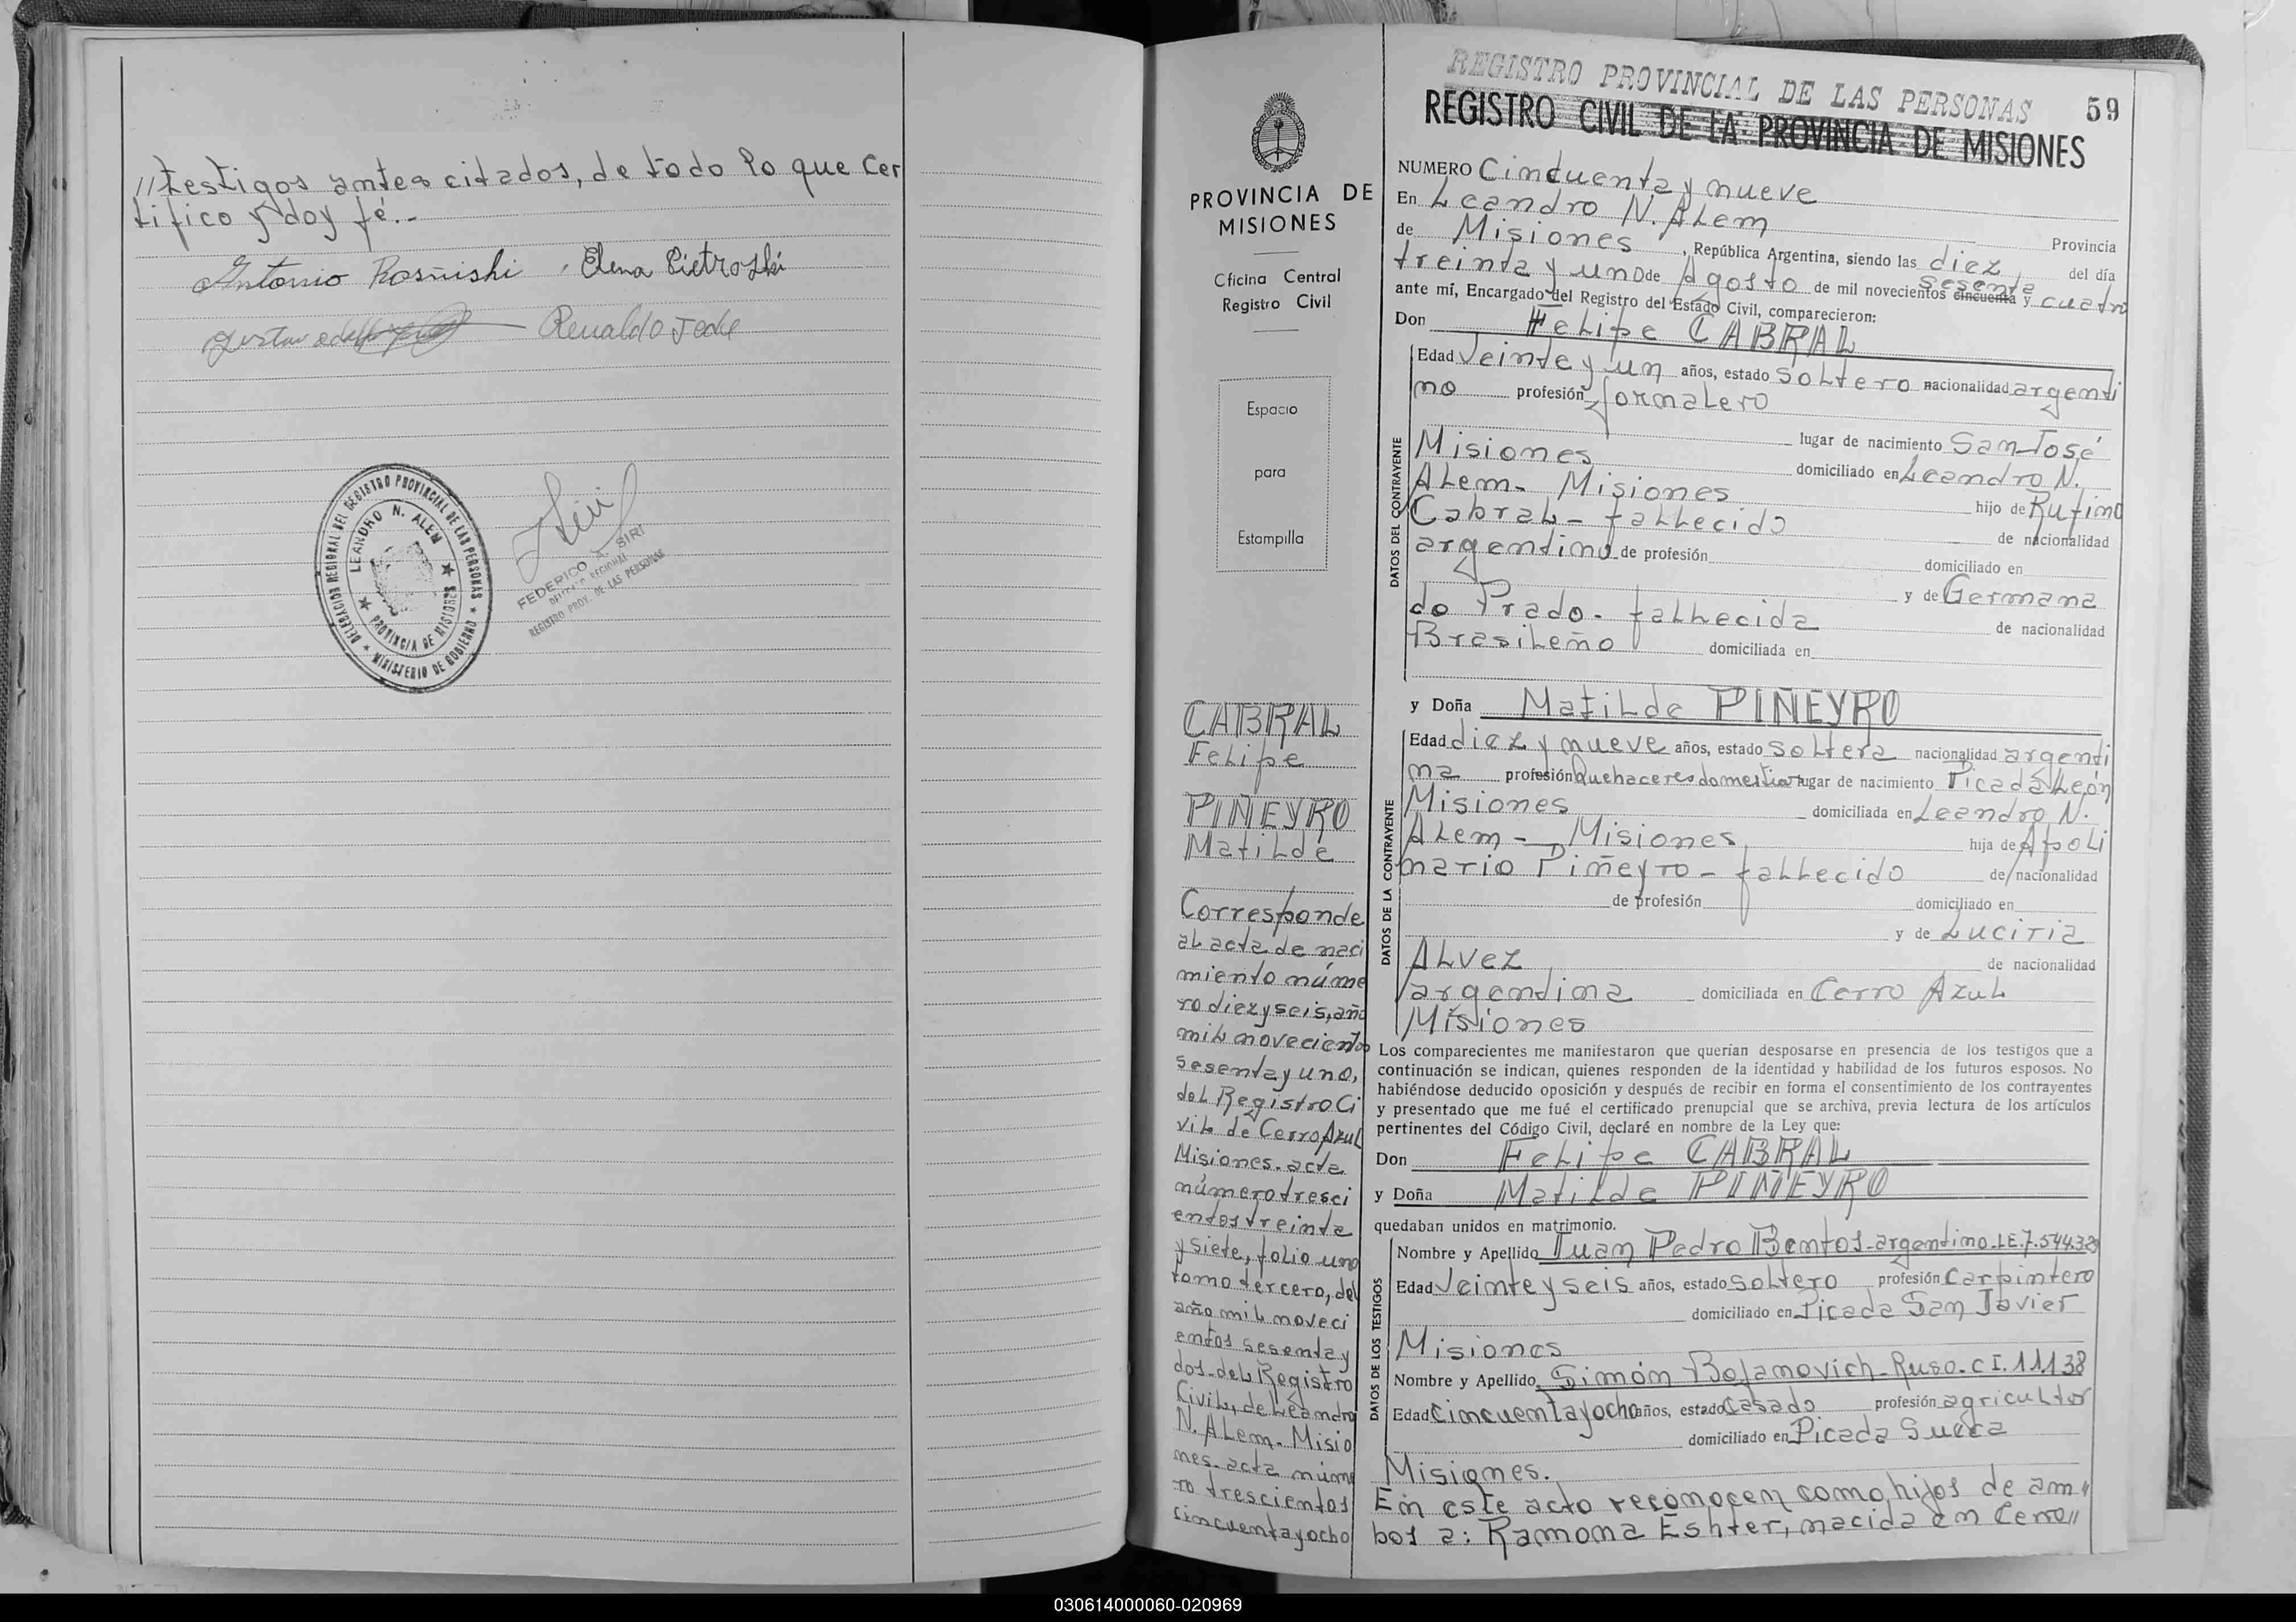 //testigos antes citados, de todo lo que cer
tifico y doy fé.-
Antonio Rosñishi Elena Pietroski
Renaldo Jede
DELEGACION REGIONAL DEL REGISTRO PROVINCIAL DE LAS PERSONAS
LEANDRO N. ALEM
PROVINCIA DE MISIONES
MINISTERIO DE GOBIERNO
FEDERICO A. SIRI
DELEGADO REGIONAL
REGISTRO PROV. DE LAS PERSONAS
PROVINCIA DE
MISIONES
Oficina Central
Registro Civil
Espacio
para
Estampilla
CABRAL
Felipe
PIÑEYRO
Matilde
Corresponde
al acta de naci
miento núme
ro diez y seis, año
mil novecientos
sesenta y uno,
del Registro Ci
vil de Cerro Azul
Misiones. acta
número tresci
entos treinta
y siete, folio uno
tomo tercero, del
año mil noveci
entos sesenta y
dos-del Registro
Civil, de Leandro
N. Alem- Misio
nes- acta núme
ro trescientos
cincuenta y ocho
REGISTRO PROVINCIAL DE LAS PERSONAS
59
REGISTRO CIVIL DE LA PROVINCIA DE MISIONES
NUMERO Cincuenta y nueve
En Leandro N. Alem
de Misiones Provincia
, República Argentina, siendo las diez, del día
treinta y uno de Agosto de mil novecientos cincuenta sesenta y cuatro
ante mí, Encargado del Registro del Estado Civil, comparecieron:
Don Felipe CABRAL
DATOS DEL CONTRAYENTE
Edad Veinte y un años, estado soltero nacionalidad argenti
no profesión Jornalero
lugar de nacimiento San José
Misiones domiciliado en Leandro N.
Alem- Misiones hijo de Rufino
Cabral- fallecido de nacionalidad
argentino de profesión domiciliado en
y de Germana
do Prado- fallecida de nacionalidad
Brasileño domiciliada en
y Doña Matilde PIÑEYRO
DATOS DE LA CONTRAYENTE
Edad diez y nueve años, estado soltera nacionalidad argenti
na profesión Quehaceres domesticos lugar de nacimiento Picada León
Misiones domiciliada en Leandro N.
Alem - Misiones hija de Apoli
nario Piñeyro- fallecido de nacionalidad
de profesión domiciliado en
y de Luciria
Alvez de nacionalidad
argentina domiciliada en Cerro Azul
Misiones
Los comparecientes me manifestaron que querían desposarse en presencia de los testigos que a
continuación se indican, quienes responden de la identidad y habilidad de los futuros esposos. No
habiéndose deducido oposición y después de recibir en forma el consentimiento de los contrayentes
y presentado que me fué el certificado prenupcial que se archiva, previa lectura de los artículos
pertinentes del Código Civil, declaré en nombre de la Ley que:
Don Felipe CABRAL
y Doña Matilde PIÑEYRO
quedaban unidos en matrimonio.
DATOS DE LOS TESTIGOS
Nombre y Apellido Juan Pedro Bentos-argentino-LE.7.544.329
Edad Veinte y seis años, estado soltero profesión carpintero
domiciliado en Picada San Javier
Misiones
Nombre y Apellido Simón Bojanovich-Ruso-C I.11138
Edad cincuenta y ocho años, estado casado profesión agricultor
domiciliado en Picada Sueca
Misiones.
En este acto reconocen como hijos de am"
bos a: Ramona Eshter, nacida en Cerro//
030614000060-020969